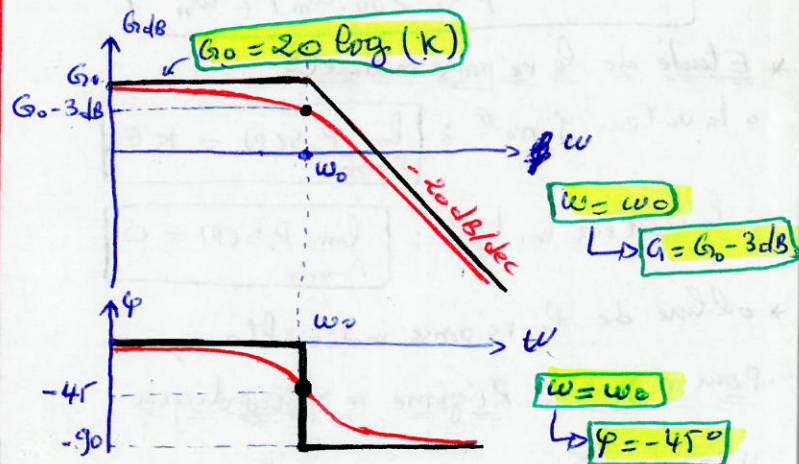 GdB
G₀ = 20 log (K)
G₀
G₀-3dB
ω
ω₀
-20dB/dec
ω = ω₀
G = G₀-3dB
φ
ω₀
ω
-45
-90
ω = ω₀
φ = -45°